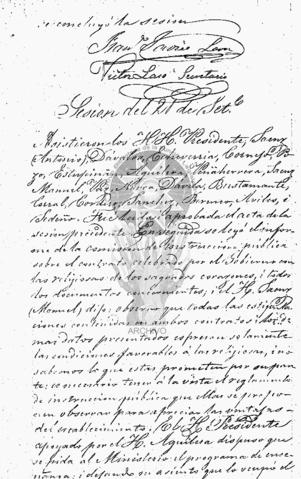 se concluyó la sesion
Fran.co Javier Leon
Victor Laso Secretario
Sesion del 21 de Set.e
Asistieron los H.H. Presidente, Saenz
(Antonio), Dávalos, Echeverria, Cornejo,
Estupiñan, Aguilera, Peñaherrera, Saenz
Manuel, Dávila, Bustamante,
Coral, Sanchez, Aviles, i
Cedeño. Fue leida i aprobada el acta de la
sesion precedente. En seguida se leyó el infor-
me de la comision de instruccion pública
sobre el contrato celebrado por el Gobierno con
las religiosas de los sagrados corazones, i todos
los documentos i el H. Saenz
(Manuel) dijo: observo que todas las estipula
ciones contenidas en ambos contratos i los de
mas datos presentados espresan solamente
las condiciones favorables á las religiosas, i no
sabemos lo que estas prometen por su par-
te: es necesario tener á la vista el reglamento
de instruccion pública que ellas se propo-
nen observar para apreciar las ventajas
del establecimiento. El H. Presidente
apoyado por el H. Aguilera dispuso que
se pida al Ministerio el programa de ense-
ñanza; i dejando su asiento que lo ocupó el
ARCHIVO